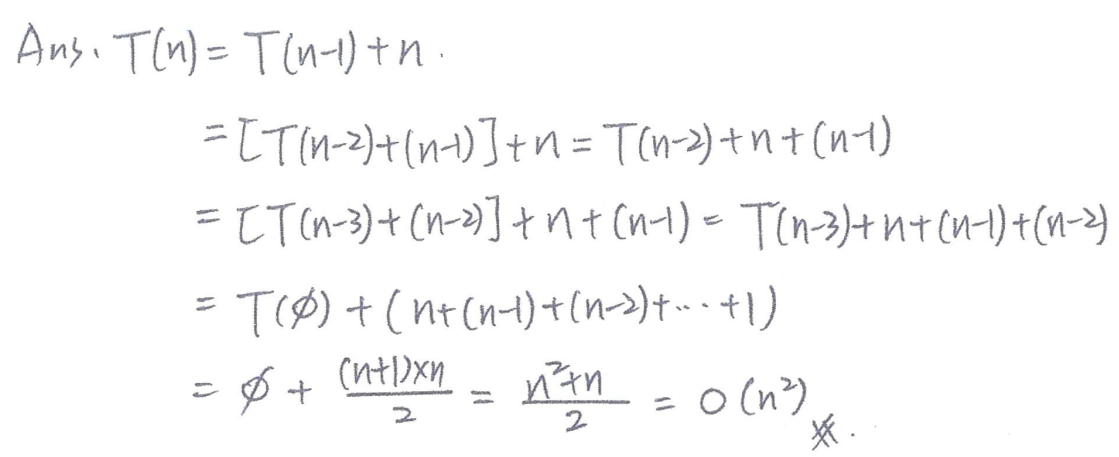 Ans. T(n) = T(n-1) + n.
= [T(n-2) + (n-1)] + n = T(n-2) + n + (n-1)
= [T(n-3) + (n-2)] + n + (n-1) = T(n-3) + n + (n-1) + (n-2)
= T(∅) + (n + (n-1) + (n-2) + ... + 1)
= ∅ + (n+1)×n/2 = n²+n/2 = O(n²) ※.